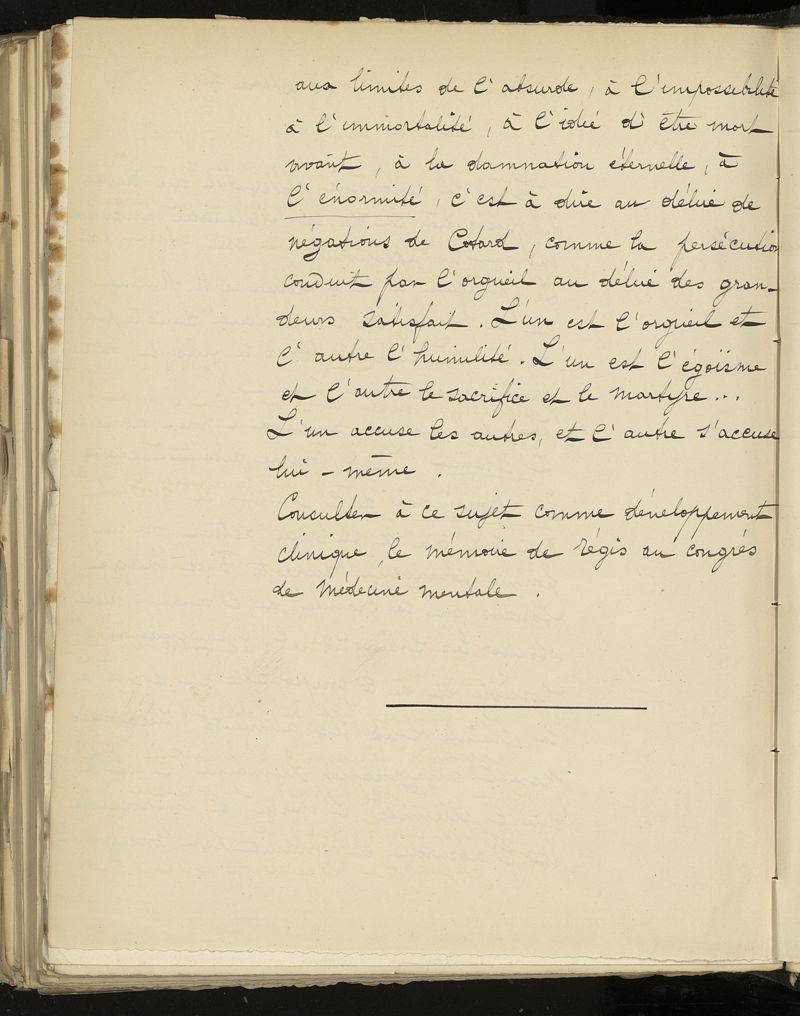 aux limites de l'absurde, à l'impossibilité
à l'immortalité, à l'idée d'être mort
vivant, à la damnation éternelle, à
l'énormité, c'est à dire au délire de
négations de Cotard, comme la persécution
conduit par l'orgueil au délire des gran-
deurs satisfait. L'un est l'orgueil et
l'autre l'humilité. L'un est l'égoïsme
et l'autre le sacrifice et le martyre...
L'un accuse les autres, et l'autre s'accuse
lui-même.
Consulter à ce sujet comme développement
clinique, le mémoire de Régis au congrés
de médecine mentale.